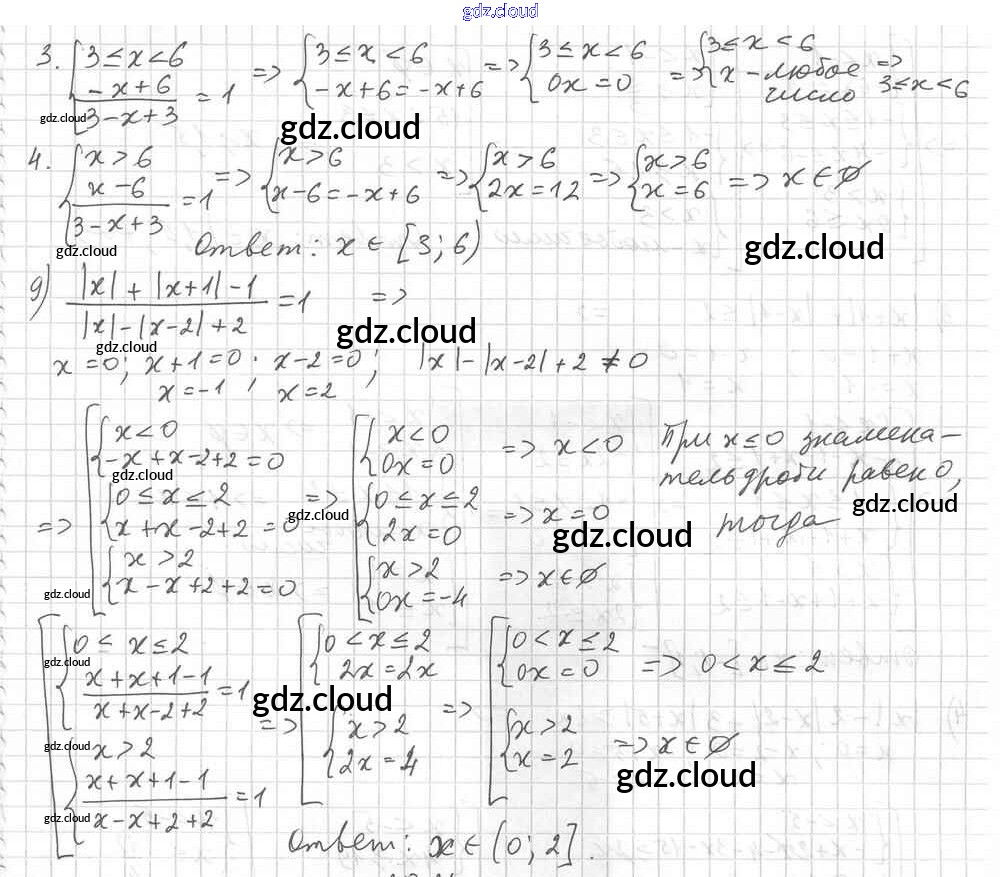 gdz.cloud
3. { 3 ≤ x < 6 ; (-x+6)/(3-x+3) = 1 => { 3 ≤ x < 6 ; -x+6 = -x+6 => { 3 ≤ x < 6 ; 0x = 0 => { 3 ≤ x < 6 ; x - любое число => 3 ≤ x < 6
gdz.cloud gdz.cloud
4. { x > 6 ; (x-6)/(3-x+3) = 1 => { x > 6 ; x-6 = -x+6 => { x > 6 ; 2x = 12 => { x > 6 ; x = 6 => x ∈ ∅
Ответ: x ∈ [3; 6)
gdz.cloud gdz.cloud
9) (|x| + |x+1| - 1)/(|x| - |x-2| + 2) = 1 =>
gdz.cloud gdz.cloud
x = 0; x+1 = 0, x-2 = 0; |x| - |x-2| + 2 ≠ 0
x = -1, x = 2
=> [ { x < 0 ; -x+x-2+2 = 0 => [ { x < 0 ; 0x = 0 => x < 0
{ 0 ≤ x ≤ 2 ; x+x-2+2 = 0 { 0 ≤ x ≤ 2 ; 2x = 0 => x = 0
{ x > 2 ; x-x+2+2 = 0 { x > 2 ; 0x = -4 => x ∈ ∅
При x ≤ 0 знамена-
тель дроби равен 0,
тогда
gdz.cloud gdz.cloud gdz.cloud gdz.cloud gdz.cloud
[ { 0 < x ≤ 2 ; (x+x+1-1)/(x+x-2+2) = 1 => [ { 0 < x ≤ 2 ; 2x = 2x => [ { 0 < x ≤ 2 ; 0x = 0 => 0 < x ≤ 2
{ x > 2 ; (x+x+1-1)/(x-x+2+2) = 1 { x > 2 ; 2x = 4 { x > 2 ; x = 2 => x ∈ ∅
gdz.cloud gdz.cloud gdz.cloud gdz.cloud gdz.cloud
Ответ: x ∈ (0; 2].